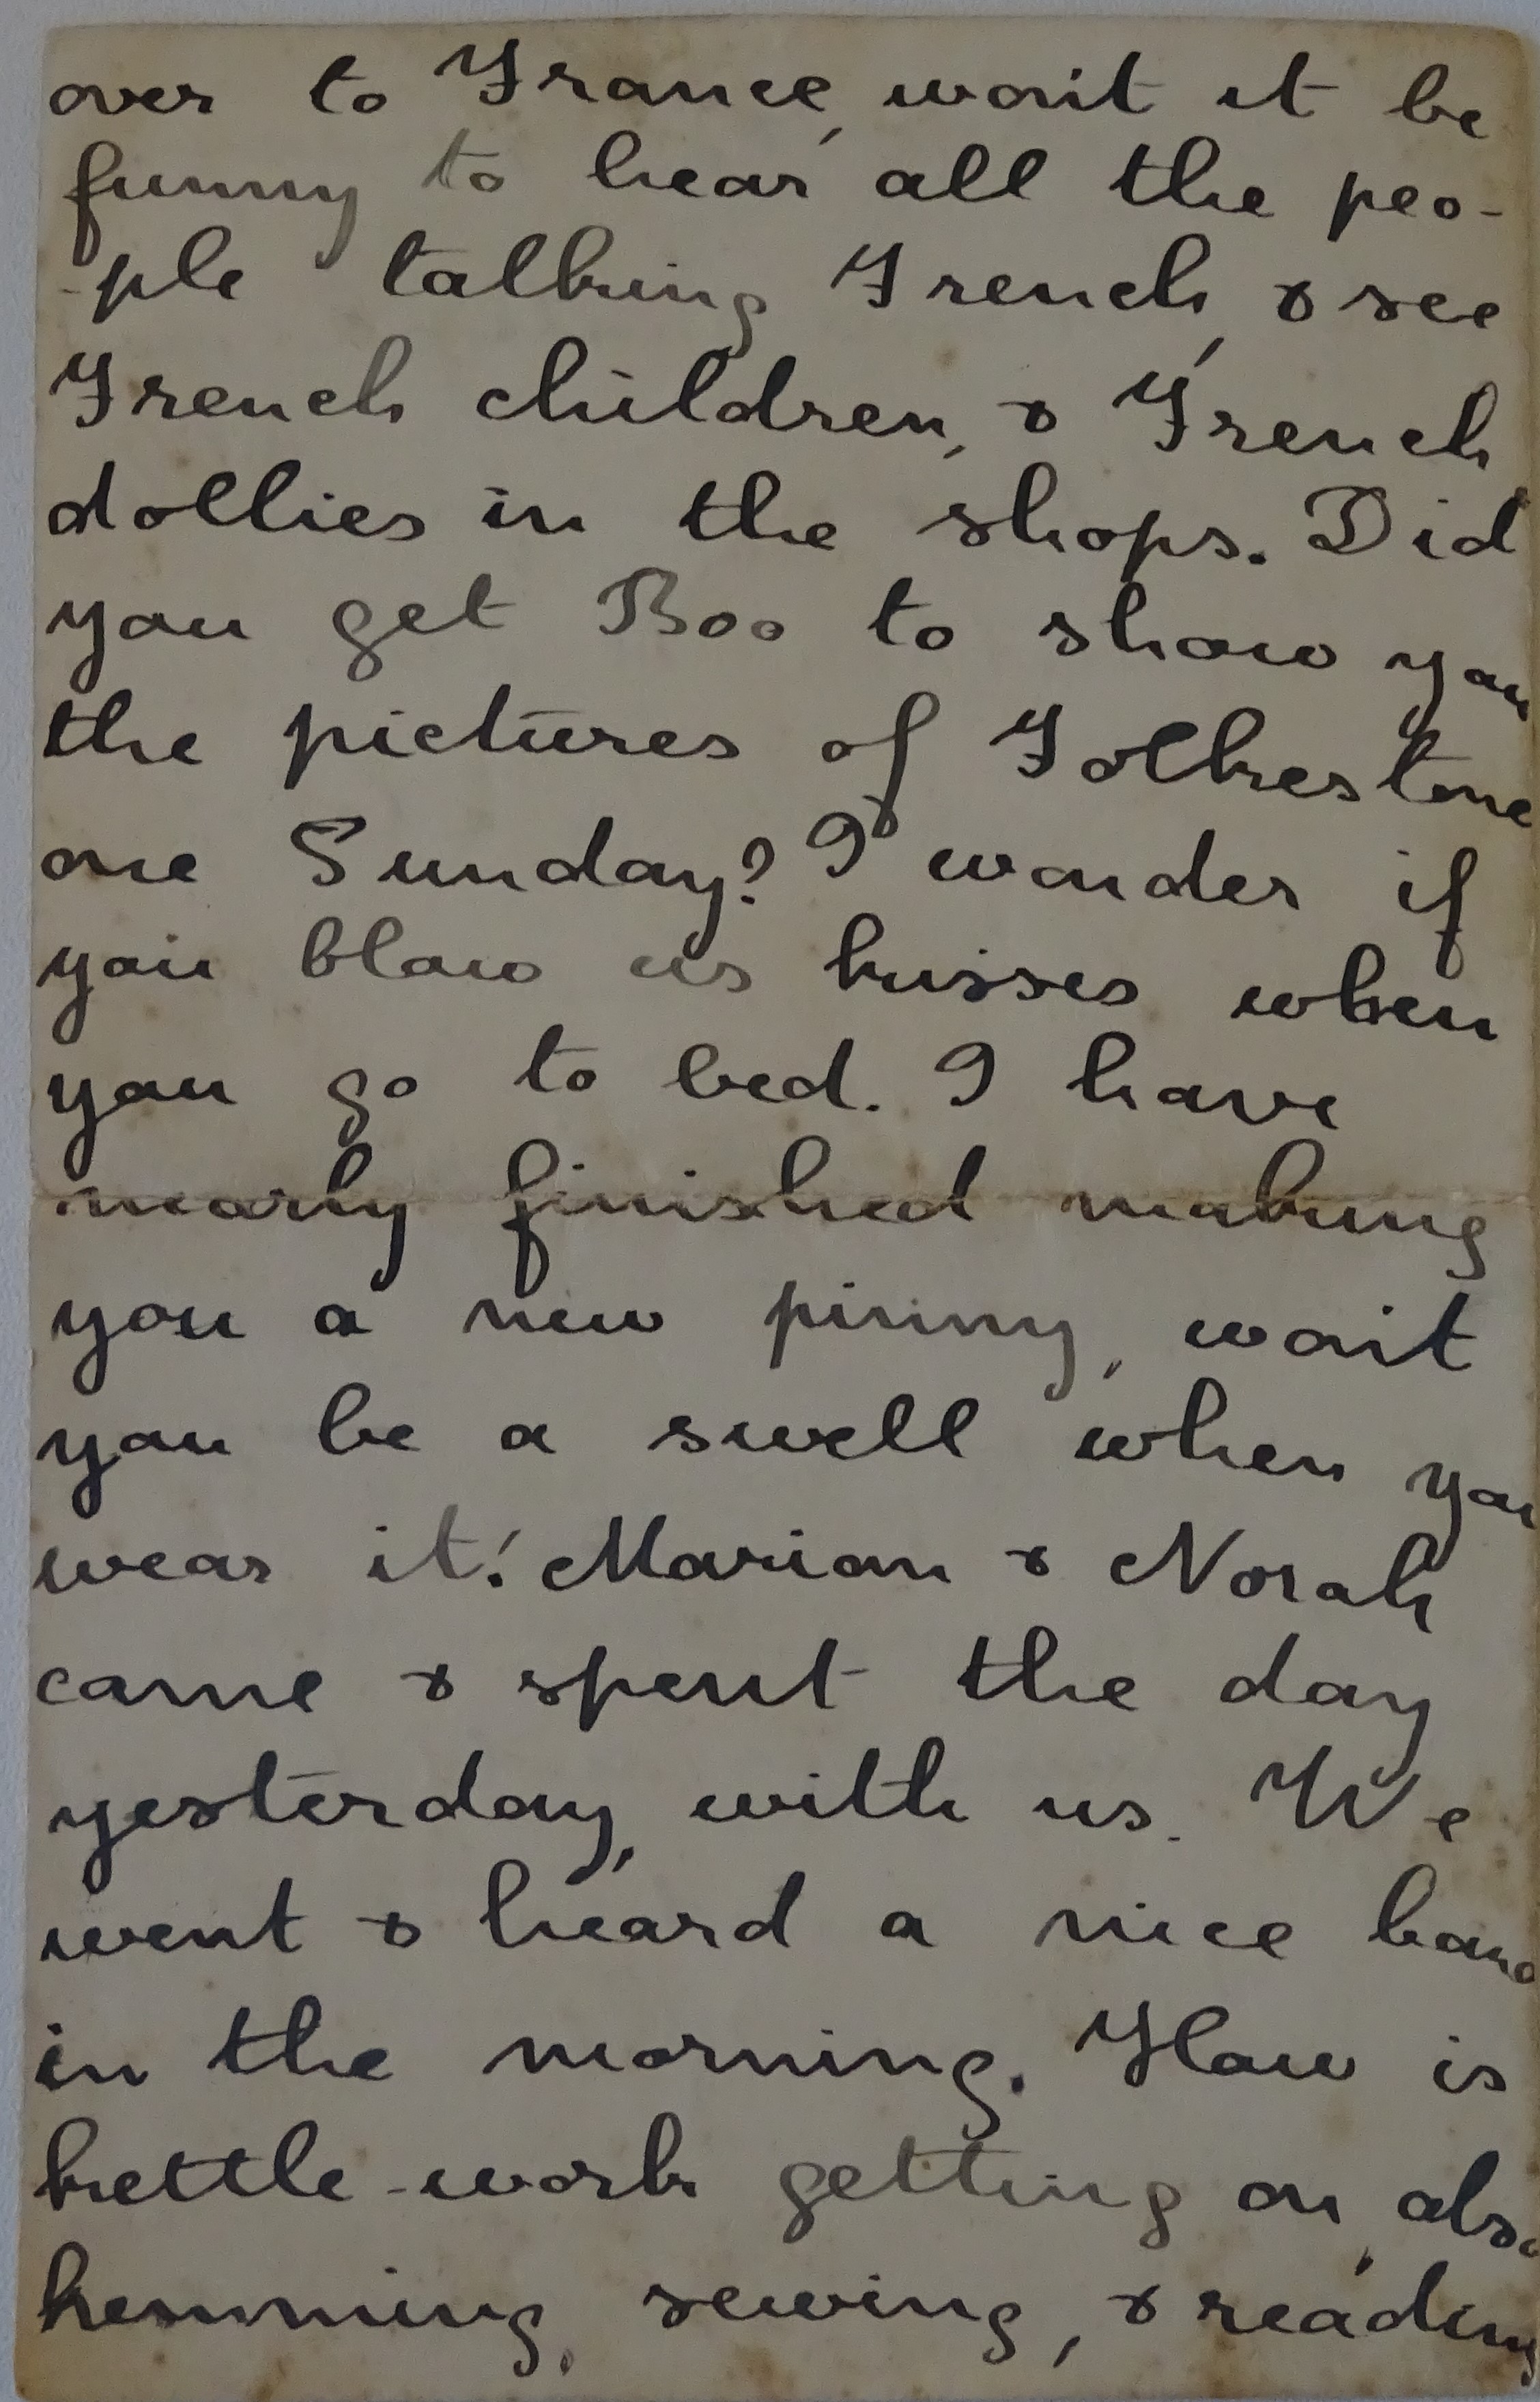 over to France, wont it be
funny to hear all the peo-
-ple talking French, & see
French children, & French
dollies in the shops. Did
you get Boo to show you
the pictures of Folkestone
one Sunday? I wonder if
you blow us kisses when
you go to bed. I have
nearly finished making
you a new pinny, wont
you be a swell when you
wear it! Marian & Norah
came & spent the day
yesterday, with us. We
went & heard a nice band
in the morning. How is
kettle-work getting on, also
hemming, sewing, & reading